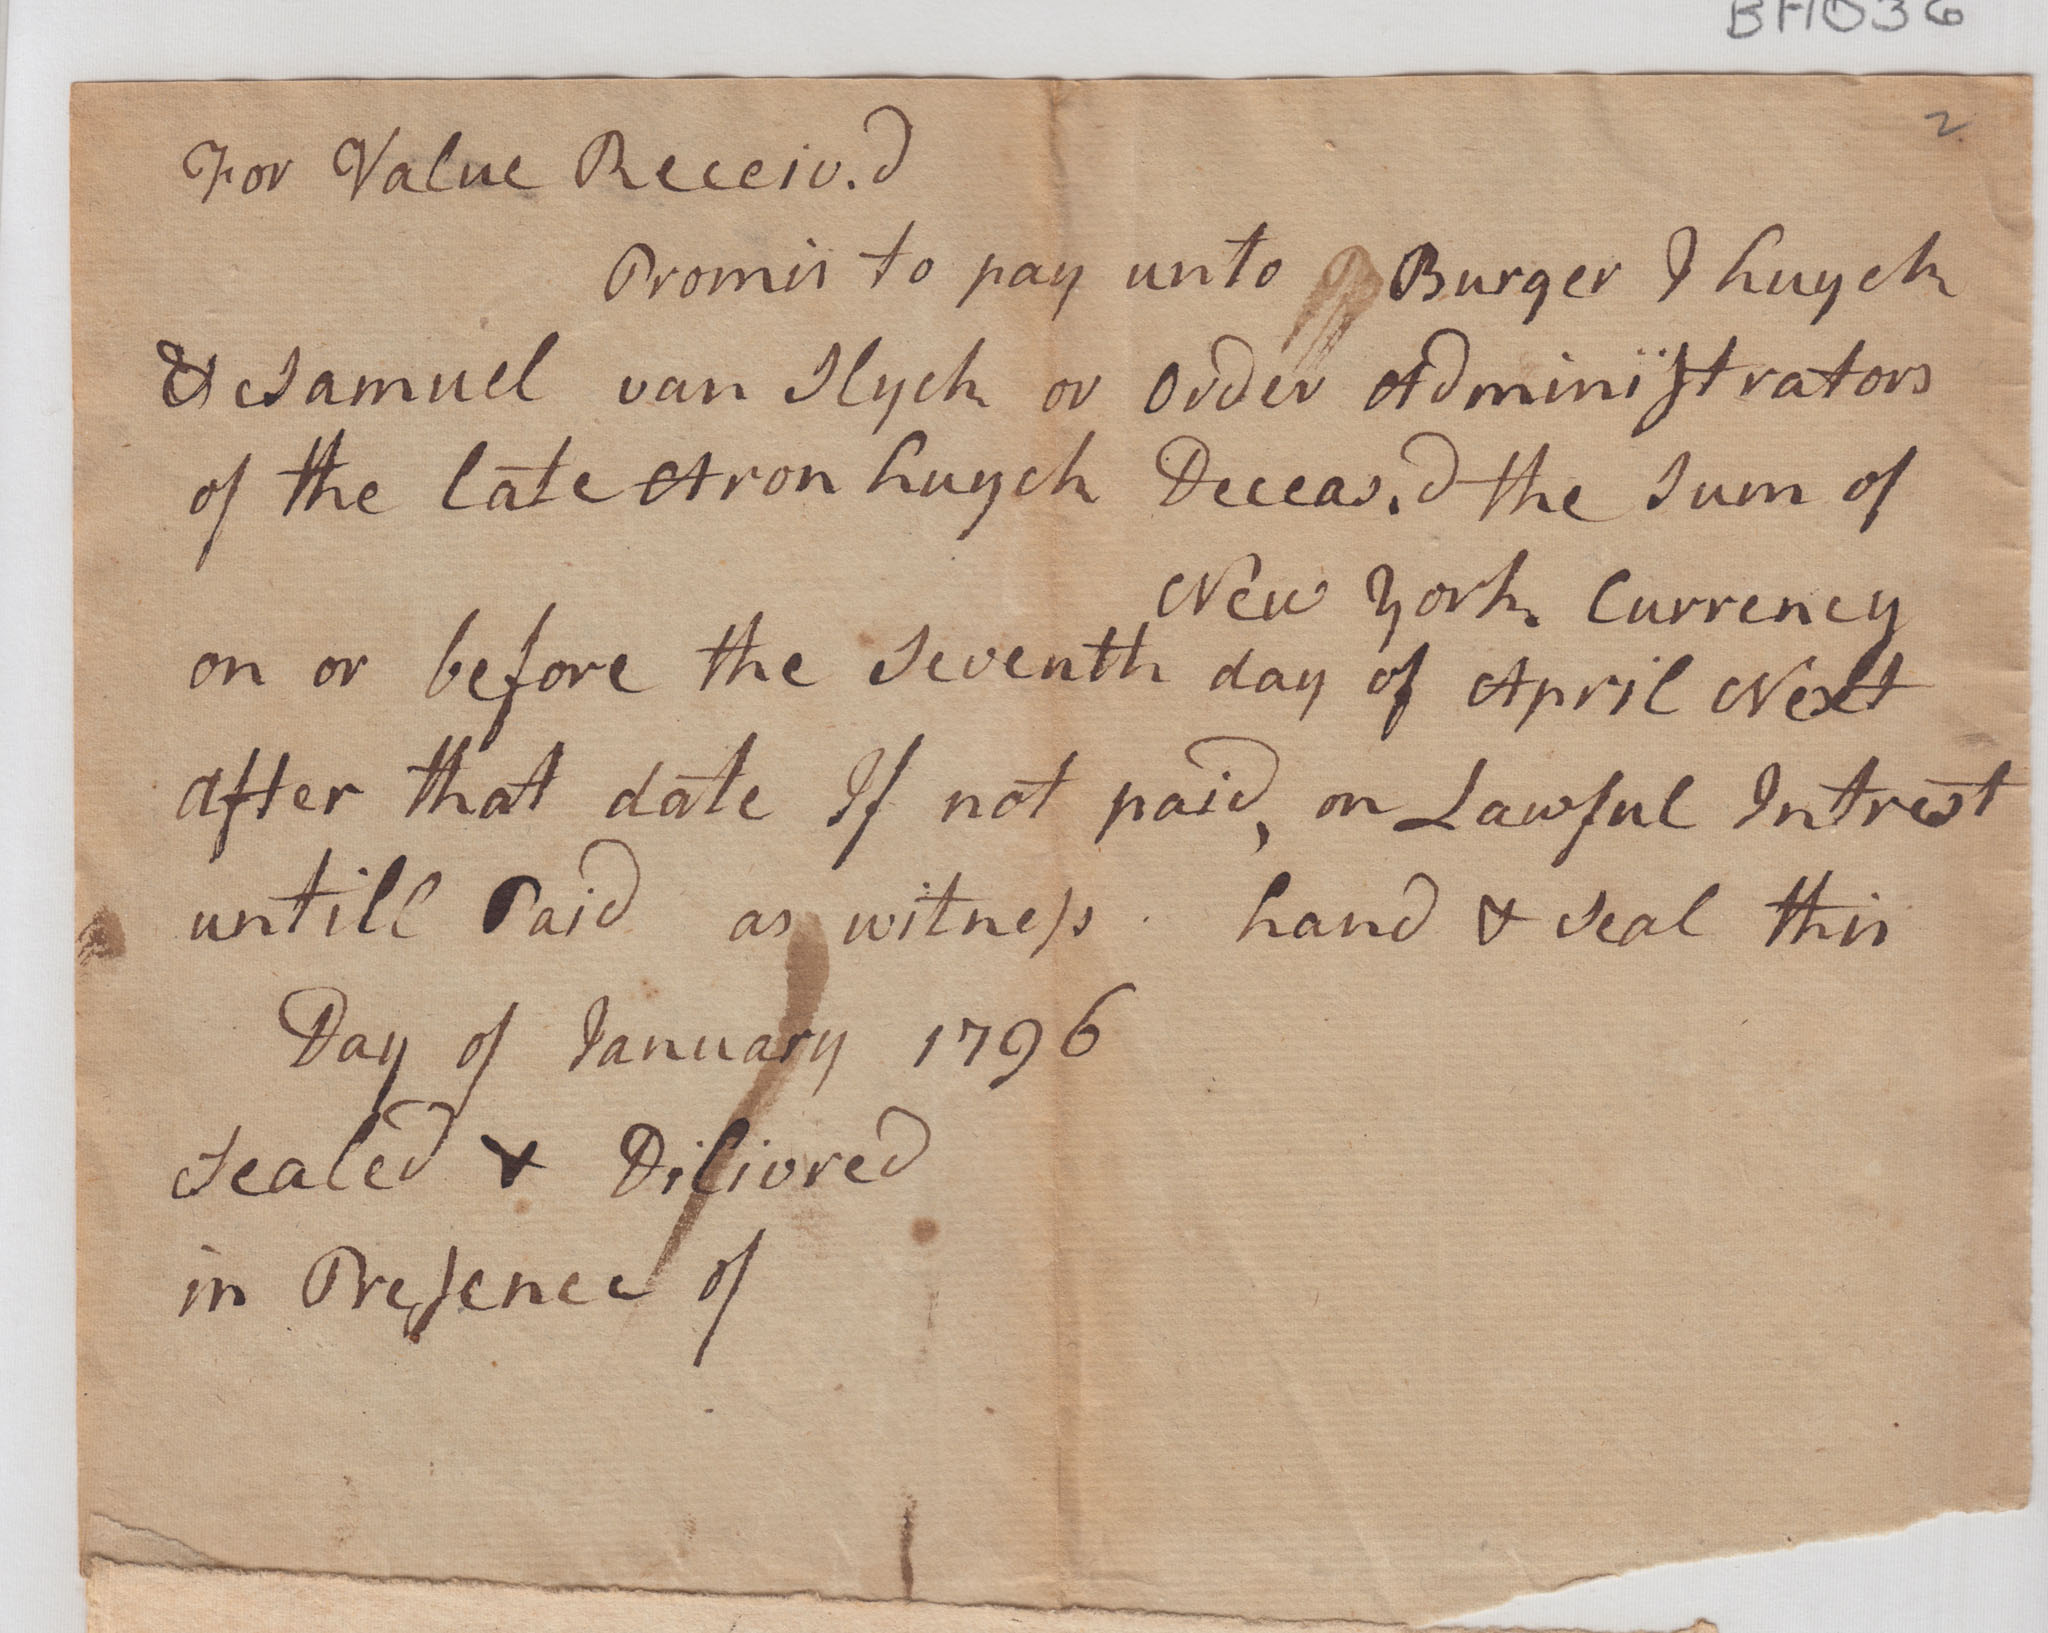 BH036
2
For Value Receiv.d
Promis to pay unto Burger J huyck
& Samuel van Slyck or Order Administrators
of the late Aron huyck Deceas.d the Sum of
New York Currency
on or before the Seventh day of April Next
after that date If not paid, on Lawful Intrest
untill Paid as witness hand & Seal this
Day of January 1796
Sealed & Dilivred
in Presence of